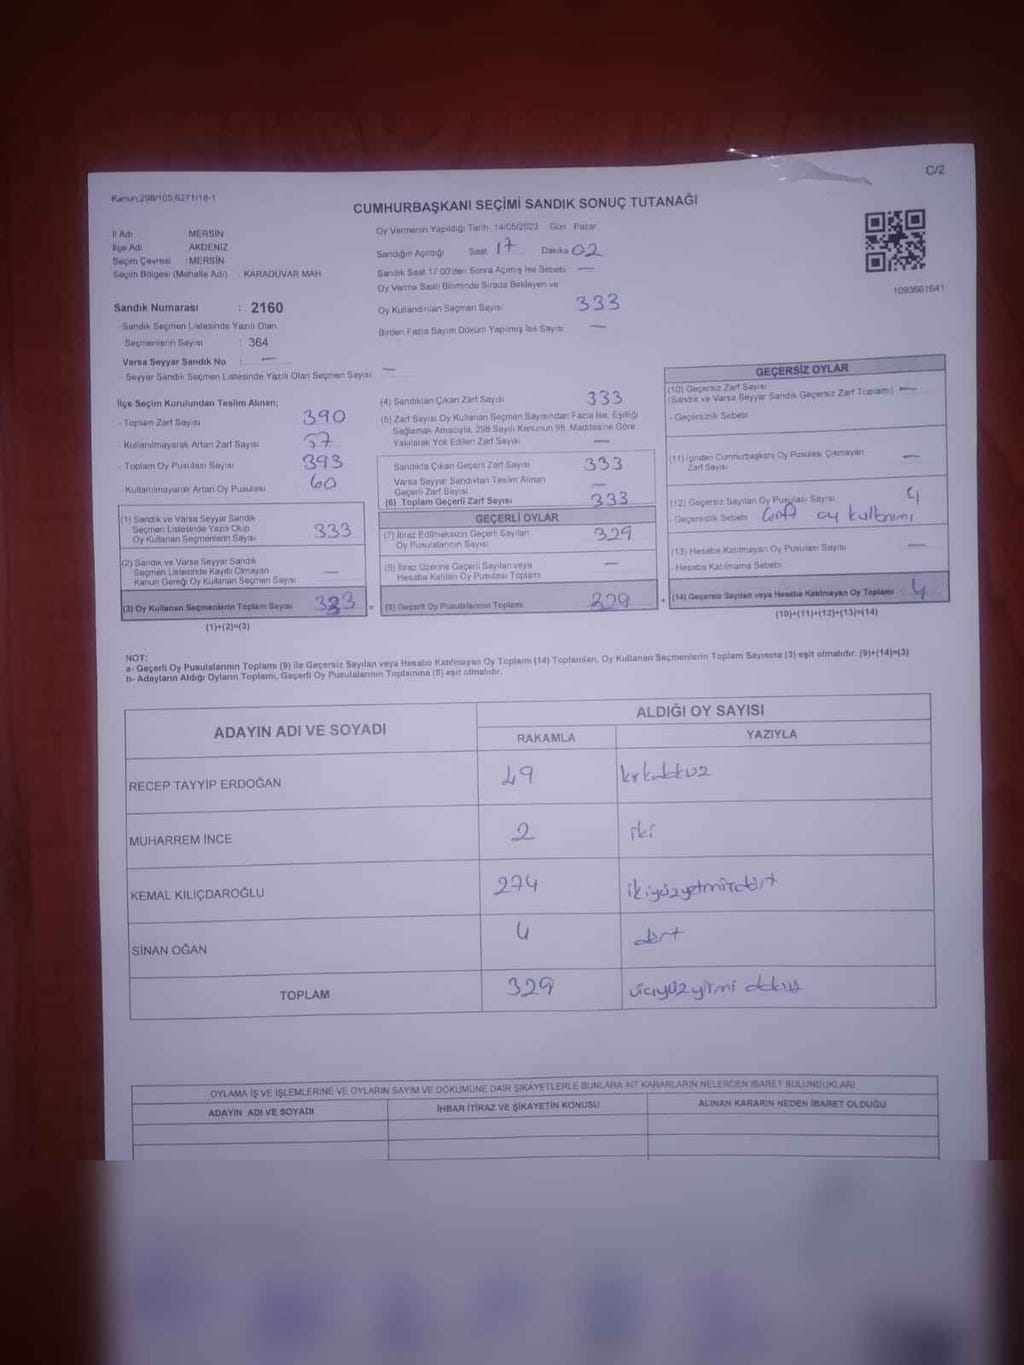 C/2
Kanun,298/105,6271/18-1
CUMHURBAŞKANI SEÇİMİ SANDIK SONUÇ TUTANAĞI
İl Adı MERSİN
İlçe Adı AKDENİZ
Seçim Çevresi : MERSİN
Seçim Bölgesi (Mahalle Adı) : KARADUVAR MAH
Oy Vermenin Yapıldığı Tarih 14/05/2023 Gün Pazar
Sandığın Açıldığı Saat 17 Dakika 02
Sandık Saat 17.00'den Sonra Açılmış İse Sebebi —
Oy Verme Saati Bitiminde Sırada Bekleyen ve
Oy Kullandırılan Seçmen Sayısı 333
Birden Fazla Sayım Döküm Yapılmış İse Sayısı —
1093681641
Sandık Numarası : 2160
- Sandık Seçmen Listesinde Yazılı Olan
Seçmenlerin Sayısı : 364
Varsa Seyyar Sandık No : —
- Seyyar Sandık Seçmen Listesinde Yazılı Olan Seçmen Sayısı —
İlçe Seçim Kurulundan Teslim Alınan;
- Toplam Zarf Sayısı 390
- Kullanılmayarak Artan Zarf Sayısı 57
- Toplam Oy Pusulası Sayısı 393
- Kullanılmayarak Artan Oy Pusulası 60
(1) Sandık ve Varsa Seyyar Sandık
Seçmen Listesinde Yazılı Olup
Oy Kullanan Seçmenlerin Sayısı 333
(2) Sandık ve Varsa Seyyar Sandık
Seçmen Listesinde Kayıtlı Olmayan
Kanun Gereği Oy Kullanan Seçmen Sayısı —
(3) Oy Kullanan Seçmenlerin Toplam Sayısı 333
(1)+(2)=(3)
(4) Sandıktan Çıkan Zarf Sayısı 333
(5) Zarf Sayısı Oy Kullanan Seçmen Sayısından Fazla İse, Eşitliği
Sağlamak Amacıyla, 298 Sayılı Kanunun 98. Maddesine Göre
Yakılarak Yok Edilen Zarf Sayısı —
Sandıkta Çıkan Geçerli Zarf Sayısı 333
Varsa Seyyar Sandıktan Teslim Alınan
Geçerli Zarf Sayısı —
(6) Toplam Geçerli Zarf Sayısı 333
GEÇERLİ OYLAR
(7) İtiraz Edilmeksizin Geçerli Sayılan
Oy Pusulalarının Sayısı 329
(8) İtiraz Üzerine Geçerli Sayılan veya
Hesaba Katılan Oy Pusulası Toplamı —
= (9) Geçerli Oy Pusulalarının Toplamı 329
GEÇERSİZ OYLAR
(10) Geçersiz Zarf Sayısı
(Sandık ve Varsa Seyyar Sandık Geçersiz Zarf Toplamı) —
- Geçersizlik Sebebi
(11) İçinden Cumhurbaşkanı Oy Pusulası Çıkmayan
Zarf Sayısı —
(12) Geçersiz Sayılan Oy Pusulası Sayısı 4
- Geçersizlik Sebebi Çift oy kullanımı
(13) Hesaba Katılmayan Oy Pusulası Sayısı —
- Hesaba Katılmama Sebebi
+ (14) Geçersiz Sayılan veya Hesaba Katılmayan Oy Toplamı 4
(10)+(11)+(12)+(13)=(14)
NOT:
a- Geçerli Oy Pusulalarının Toplamı (9) ile Geçersiz Sayılan veya Hesaba Katılmayan Oy Toplamı (14) Toplamları, Oy Kullanan Seçmenlerin Toplam Sayısına (3) eşit olmalıdır. (9)+(14)=(3)
b- Adayların Aldığı Oyların Toplamı, Geçerli Oy Pusulalarının Toplamına (9) eşit olmalıdır.
ADAYIN ADI VE SOYADI
ALDIĞI OY SAYISI
RAKAMLA YAZIYLA
RECEP TAYYİP ERDOĞAN 49 kırkdokuz
MUHARREM İNCE 2 iki
KEMAL KILIÇDAROĞLU 274 ikiyüzyetmişdört
SİNAN OĞAN 4 dört
TOPLAM 329 üçyüzyirmi dokuz
OYLAMA İŞ VE İŞLEMLERİNE VE OYLARIN SAYIM VE DÖKÜMÜNE DAİR ŞİKAYETLERLE BUNLARA AİT KARARLARIN NELERDEN İBARET BULUNDUKLARI
ADAYIN ADI VE SOYADI İHBAR İTİRAZ VE ŞİKAYETİN KONUSU ALINAN KARARIN NEDEN İBARET OLDUĞU